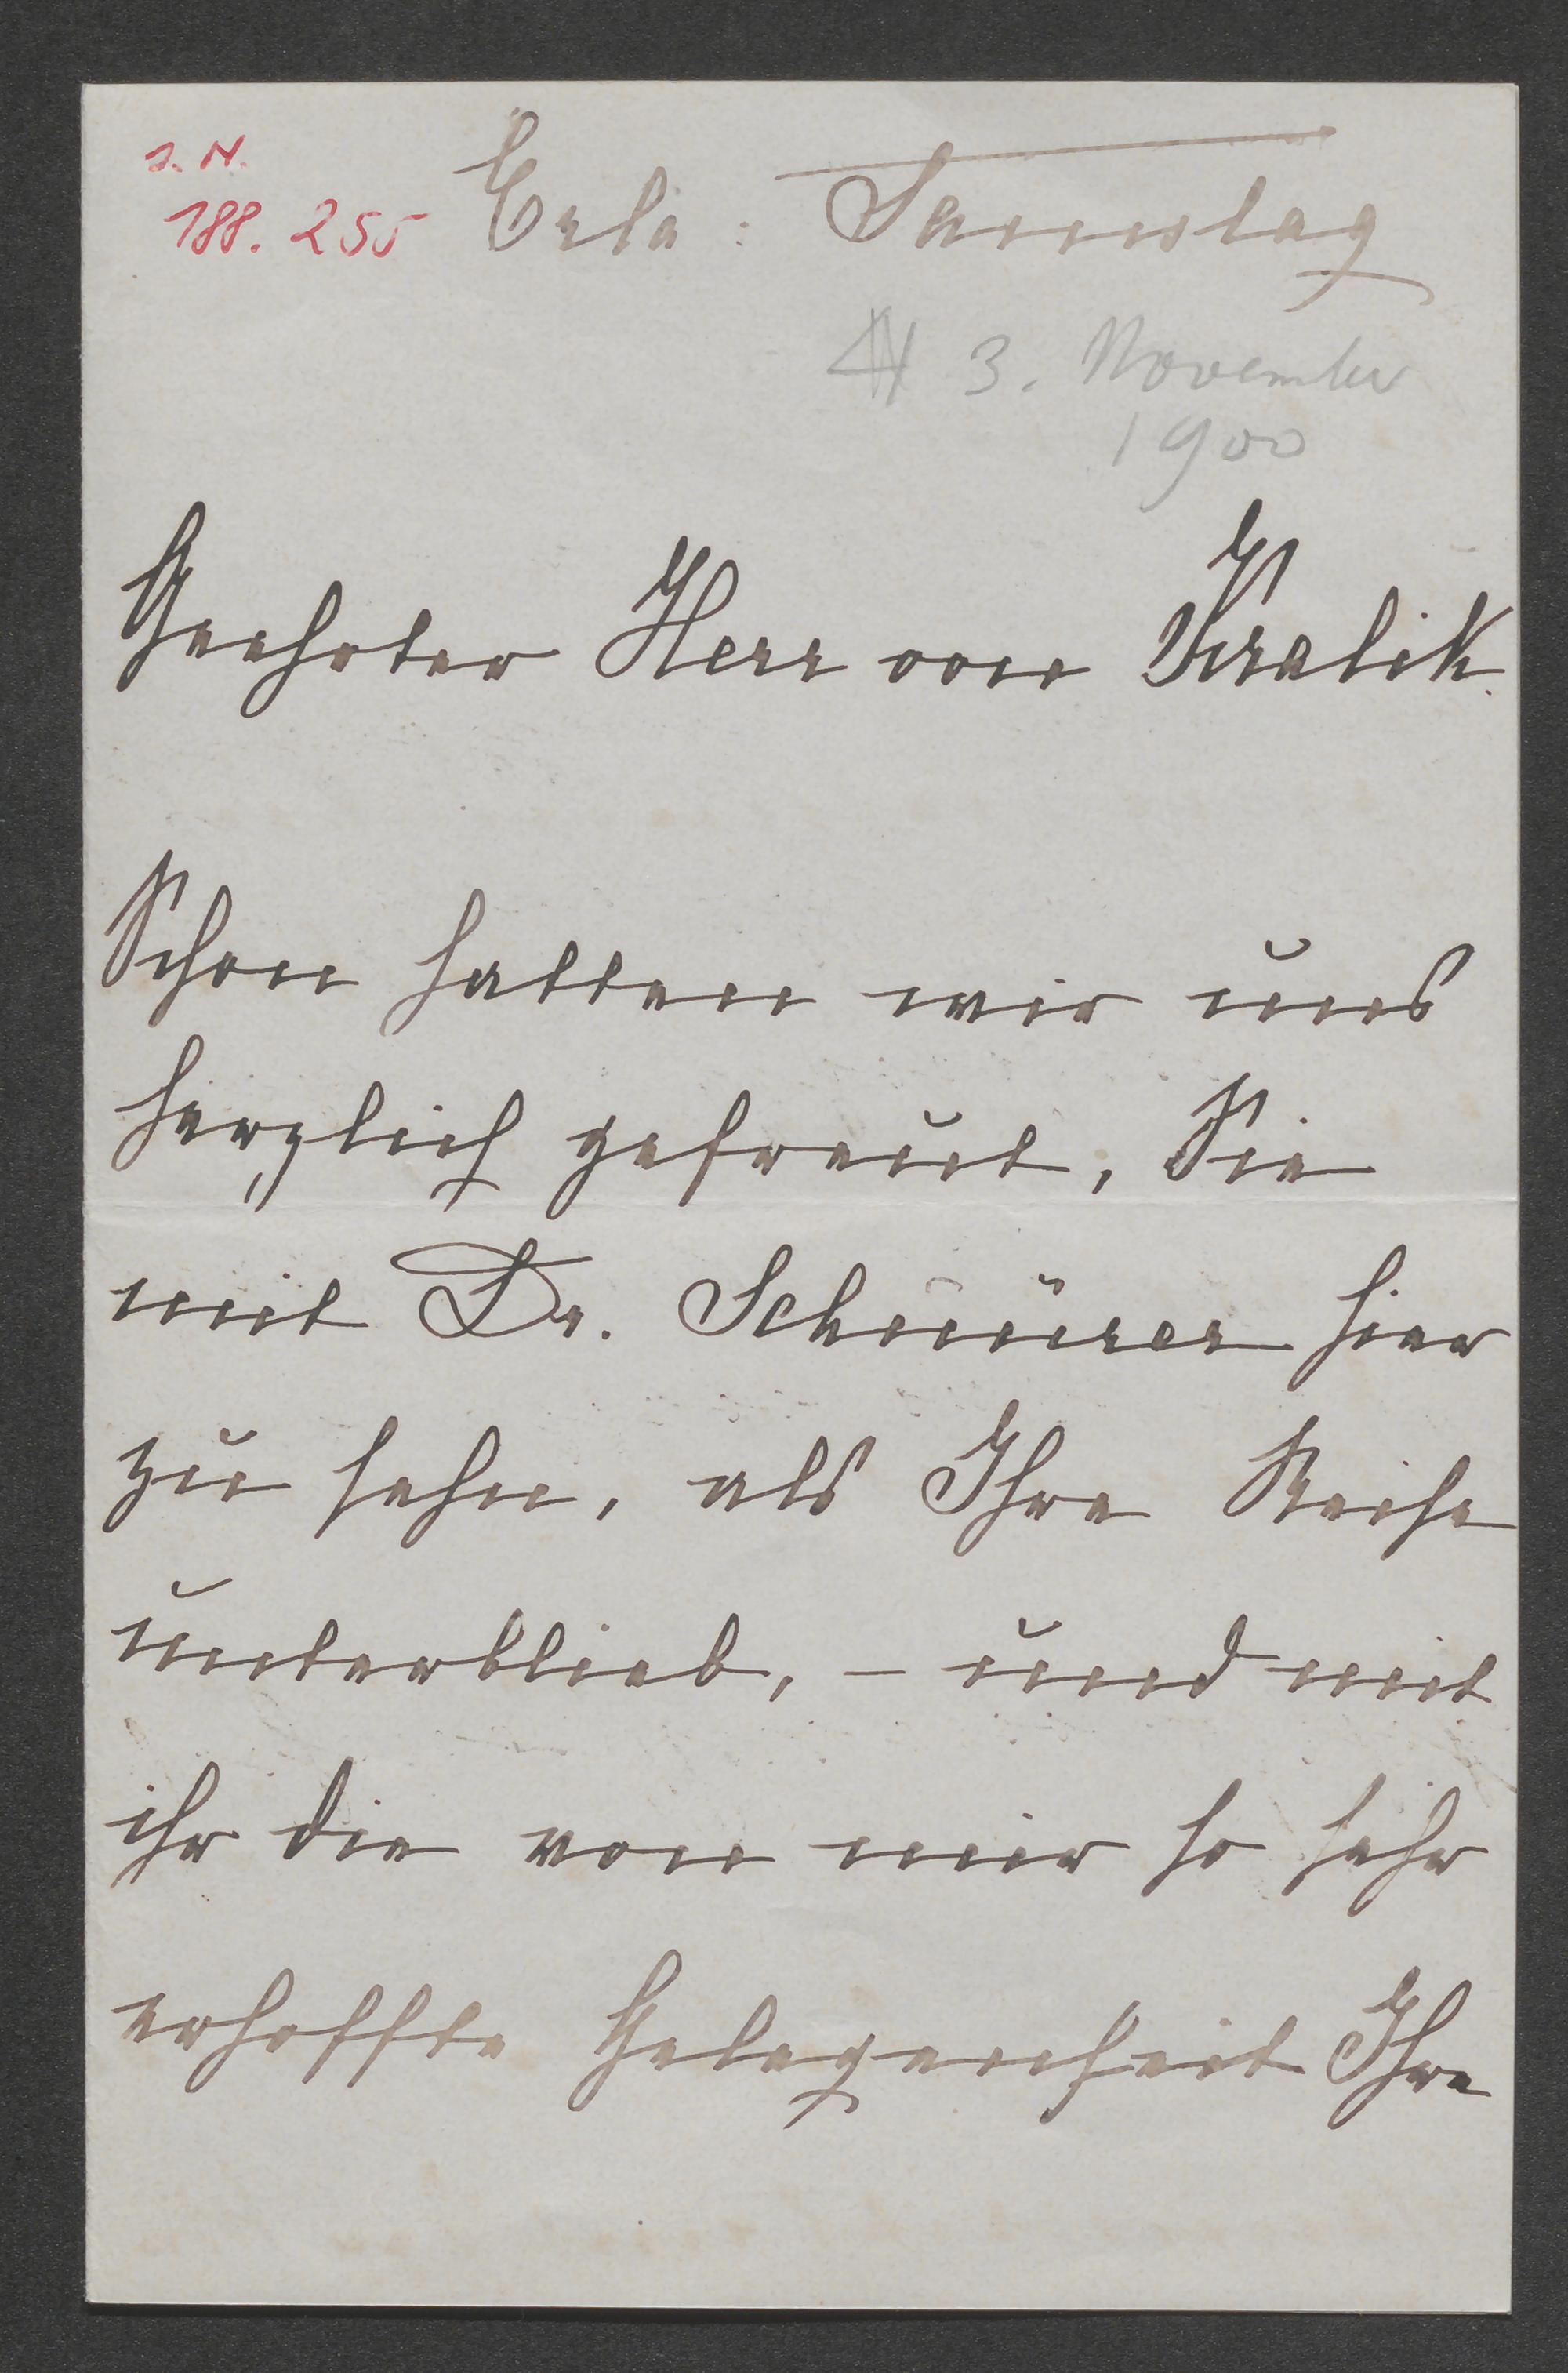 I. N.
188. 255
Erla: Samstag
3. November
1900
Geehrter Herr von Kralik.
Schon hatten wir uns
herzlich gefreut, Sie
mit Dr. Schnürer hier
zu sehn, als Ihre Reise
unterblieb, – und mit
ihr die von mir so sehr
erhoffte Gelegenheit Ihre